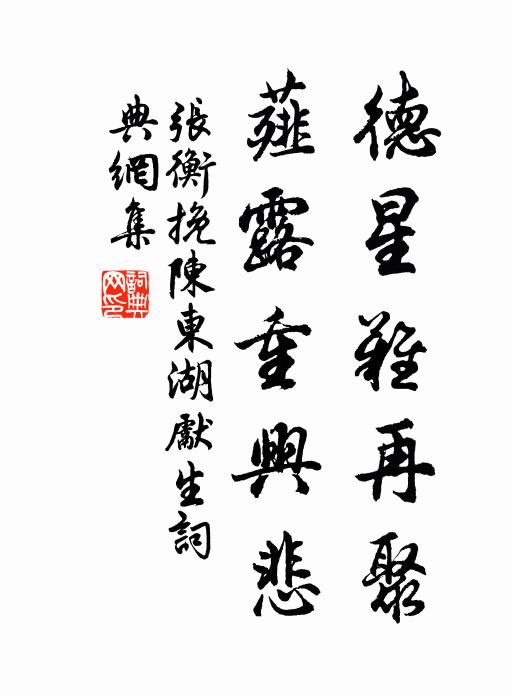 德星難再聚
薤露重興悲
張衡挽陳東湖獻生詞
典網集
詞典網印